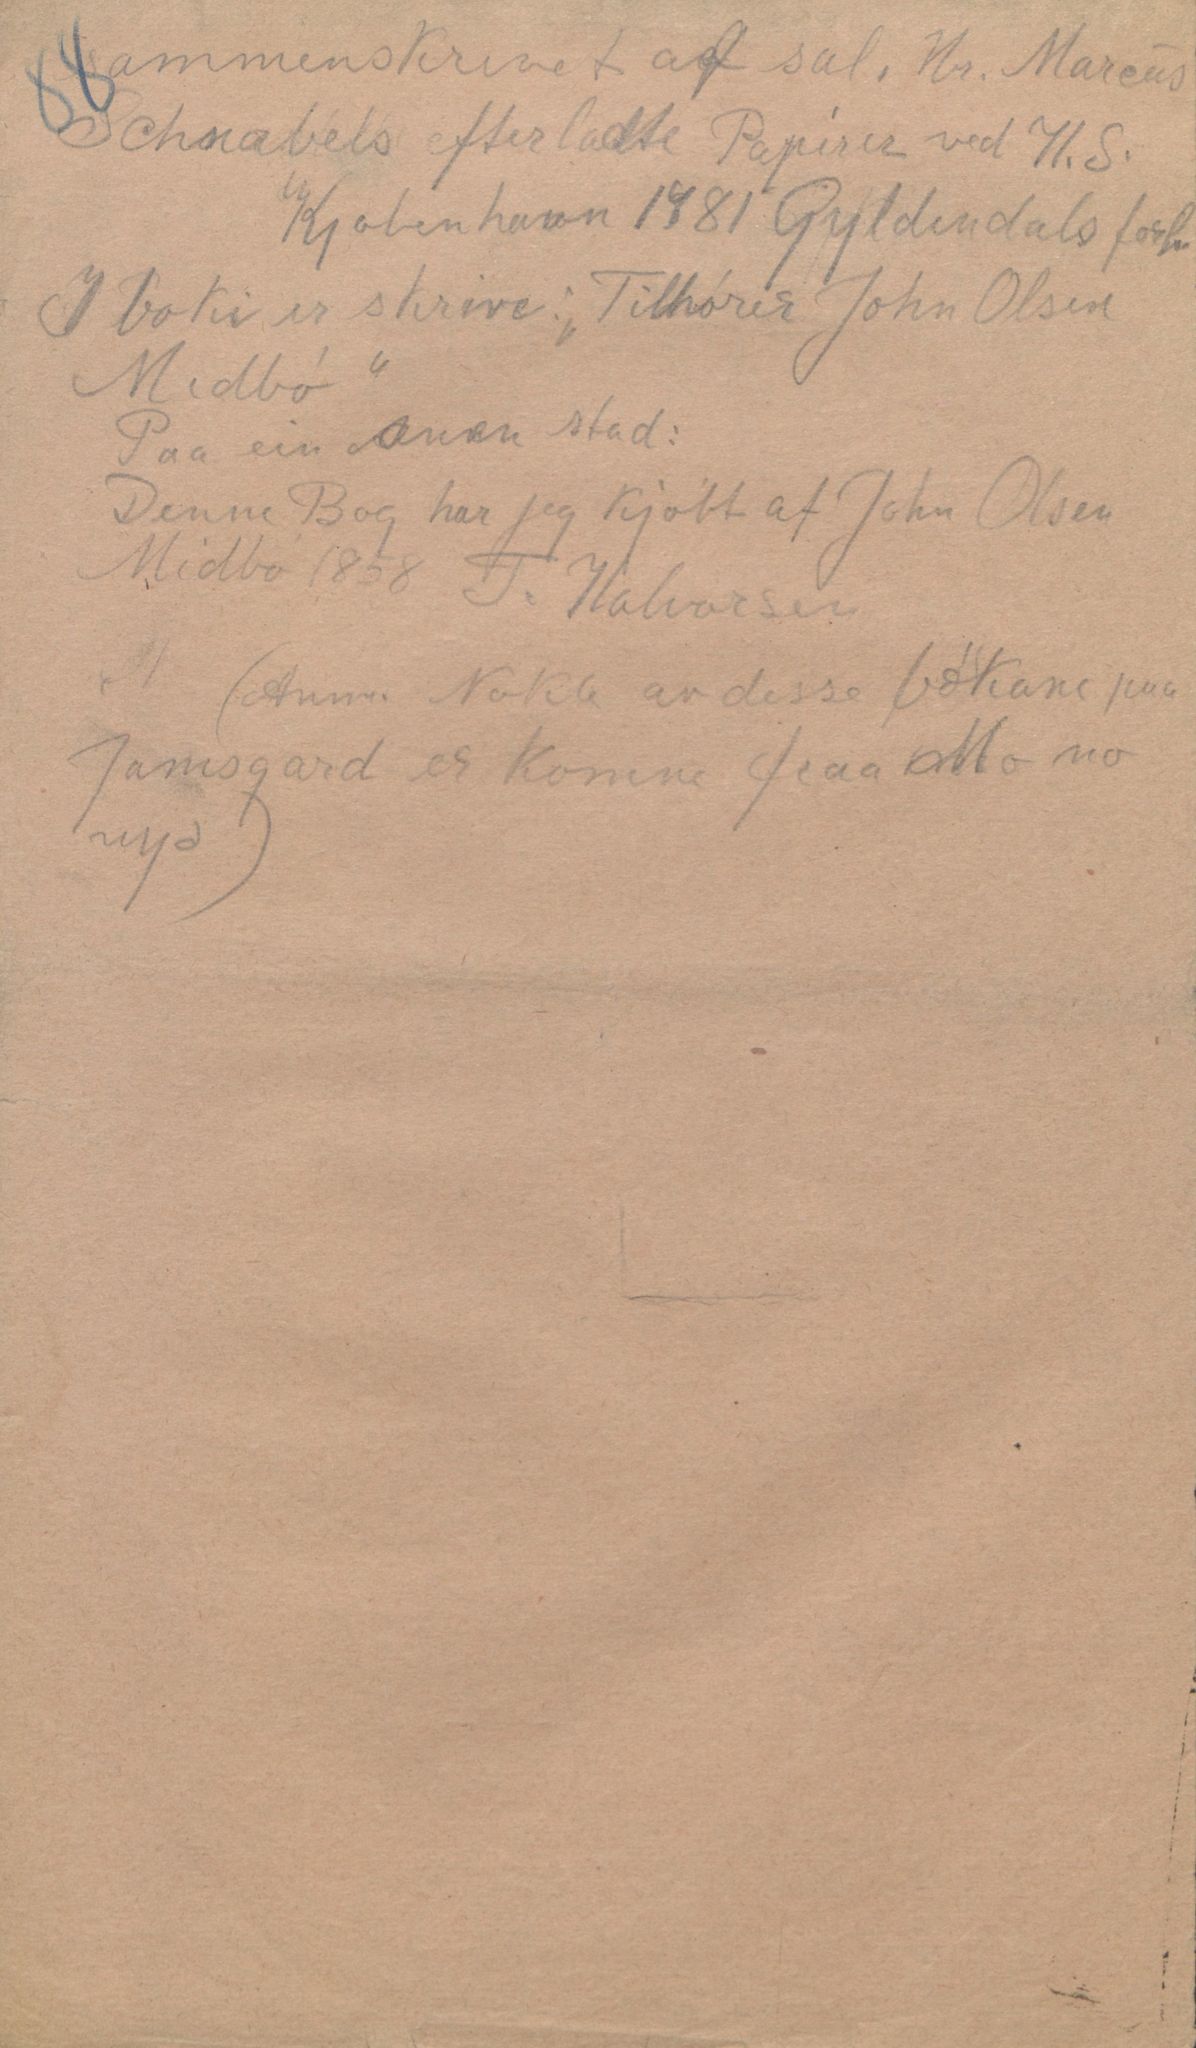 88
Sammenskrivet af sal. Hr. Marcus
Schnabels efterladte Papirer ved H. S.
Kjøbenhavn 1781 Gyldendals forl.
I boki er skrive: „Tilhörer John Olsen
Midbö"
Paa ein anen stad:
Denne Bog har jeg kjöbt af John Olsen
Midbö 1858 T. Halvorsen
(Anm. Nokle av desse bökane paa
Jamsgard er komne fraa Mo no
nyo)